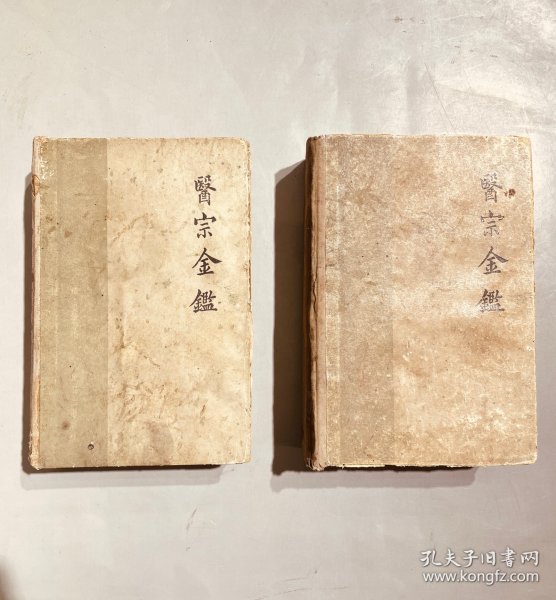 醫宗金鑑
醫宗金鑑
孔夫子旧书网
www.kongfz.com